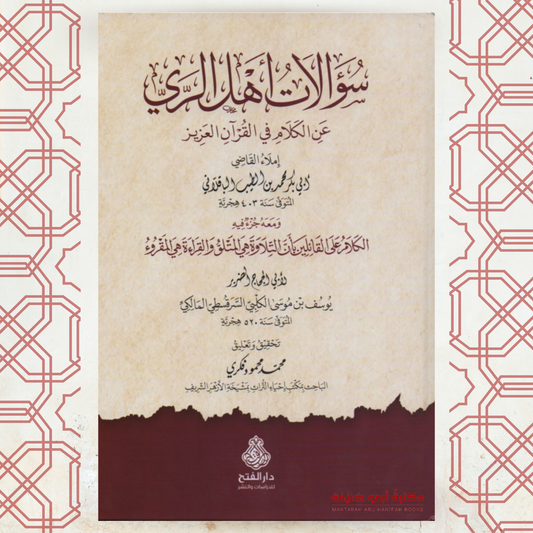 سُؤَالَاتُ أَهْلِ الرَّيِّ
عَنِ الكَلَامِ فِي القُرْآنِ العَزِيزِ
إملاءُ القَاضِي
أبي بكر محمد بن الطيب الباقلاني
المتوفى سَنَة ٤٠٣ هِجْرِيَّة
وَمَعَهُ جُزْءٌ فِيهِ
الكَلَامُ عَلَى القَائِلِينَ بِأَنَّ التِّلَاوَةَ هِيَ المَتْلُوُّ وَالقِرَاءَةَ هِيَ المَقْرُوءُ
لأبي الحجاج الضرير
يُوسُفَ بْنِ مُوسَى الكَلْبِيِّ السَّرَقُسْطِيِّ المَالِكِيِّ
المتوفى سَنَة ٥٢٠ هِجْرِيَّة
تَحْقِيق وَتَعْلِيق
محمد محمود فكري
البَاحِث بِمَكْتَبِ إِحْيَاءِ التُّرَاثِ بِمَشْيَخَةِ الأَزْهَرِ الشَّرِيفِ
دار الفتح
للدراسات والنشر
مكتبة أبي حنيفة
MAKTABAH ABU HANIFAH BOOKS